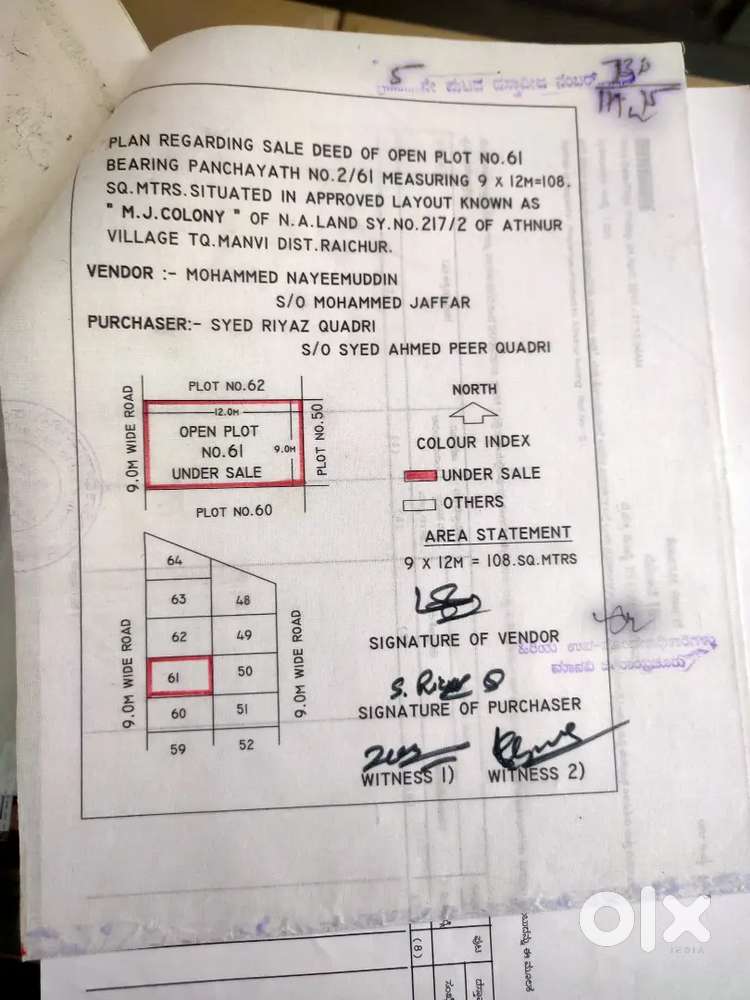 5 ನೇ ಪುಟದ ದಸ್ತಾವೇಜು ನಂಬರ್
PLAN REGARDING SALE DEED OF OPEN PLOT NO.61
BEARING PANCHAYATH NO.2/61 MEASURING 9 X 12M=108.
SQ.MTRS.SITUATED IN APPROVED LAYOUT KNOWN AS
" M.J.COLONY " OF N.A.LAND SY.NO.217/2 OF ATHNUR
VILLAGE TQ.MANVI DIST.RAICHUR.
VENDOR :- MOHAMMED NAYEEMUDDIN
S/O MOHAMMED JAFFAR
PURCHASER:- SYED RIYAZ QUADRI
S/O SYED AHMED PEER QUADRI
PLOT NO.62
9.0M WIDE ROAD
12.0M
OPEN PLOT
NO.61
UNDER SALE
9.0M
PLOT NO.50
PLOT NO.60
NORTH
COLOUR INDEX
UNDER SALE
OTHERS
AREA STATEMENT
9 X 12M = 108.SQ.MTRS
64
63
48
62
49
61
50
60
51
59
52
9.0M WIDE ROAD
9.0M WIDE ROAD
SIGNATURE OF VENDOR
S. Riyaz Q
SIGNATURE OF PURCHASER
WITNESS 1)
WITNESS 2)
(8)
olx